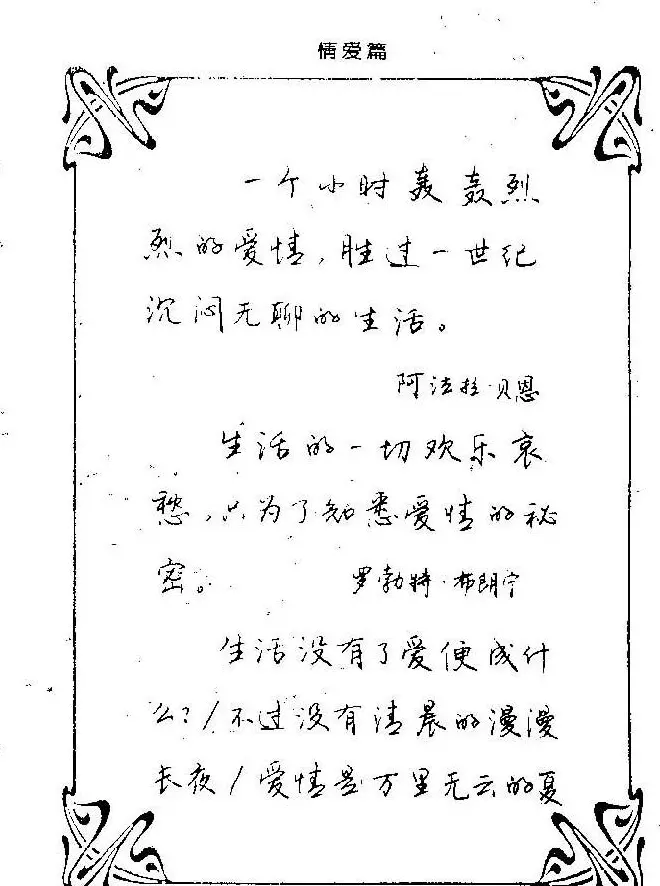 情爱篇
一个小时轰轰烈
烈的爱情，胜过一世纪
沉闷无聊的生活。
阿法拉·贝恩
生活的一切欢乐哀
愁，只为了知悉爱情的秘
密。
罗勃特·布朗宁
生活没有了爱便成什
么？/不过没有清晨的漫漫
长夜/爱情是万里无云的夏